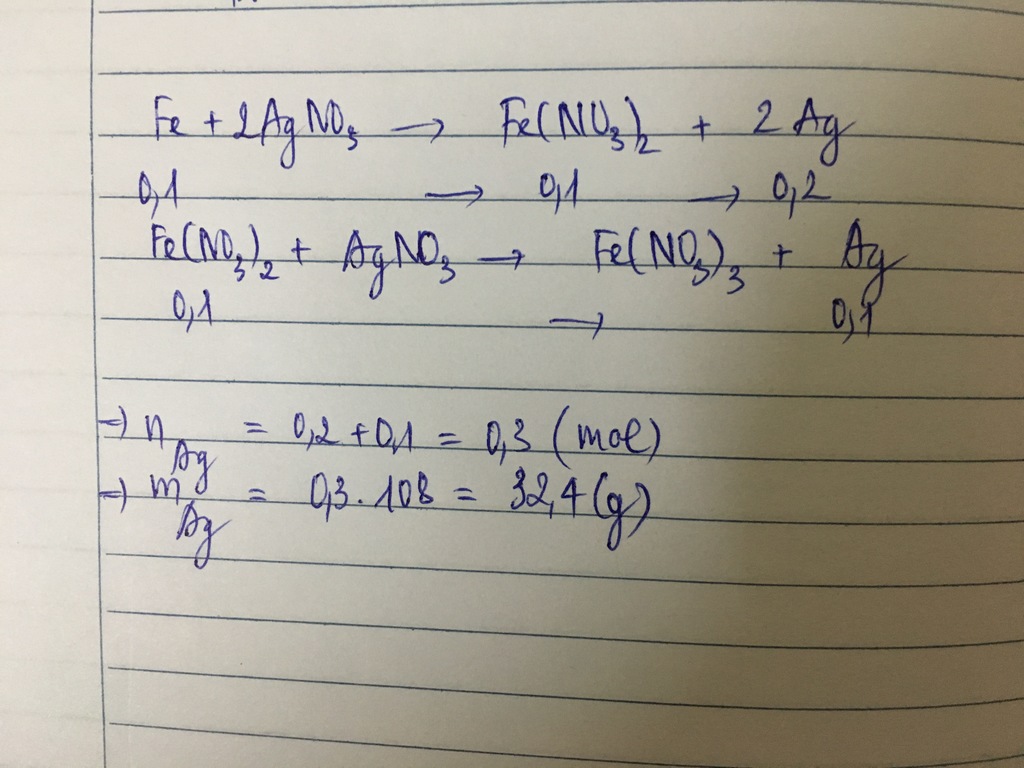 Fe + 2AgNO3 → Fe(NO3)2 + 2Ag
0,1 → 0,1 → 0,2
Fe(NO3)2 + AgNO3 → Fe(NO3)3 + Ag
0,1 → 0,1
=) nAg = 0,2 + 0,1 = 0,3 (mol)
=) mAg = 0,3 . 108 = 32,4 (g)